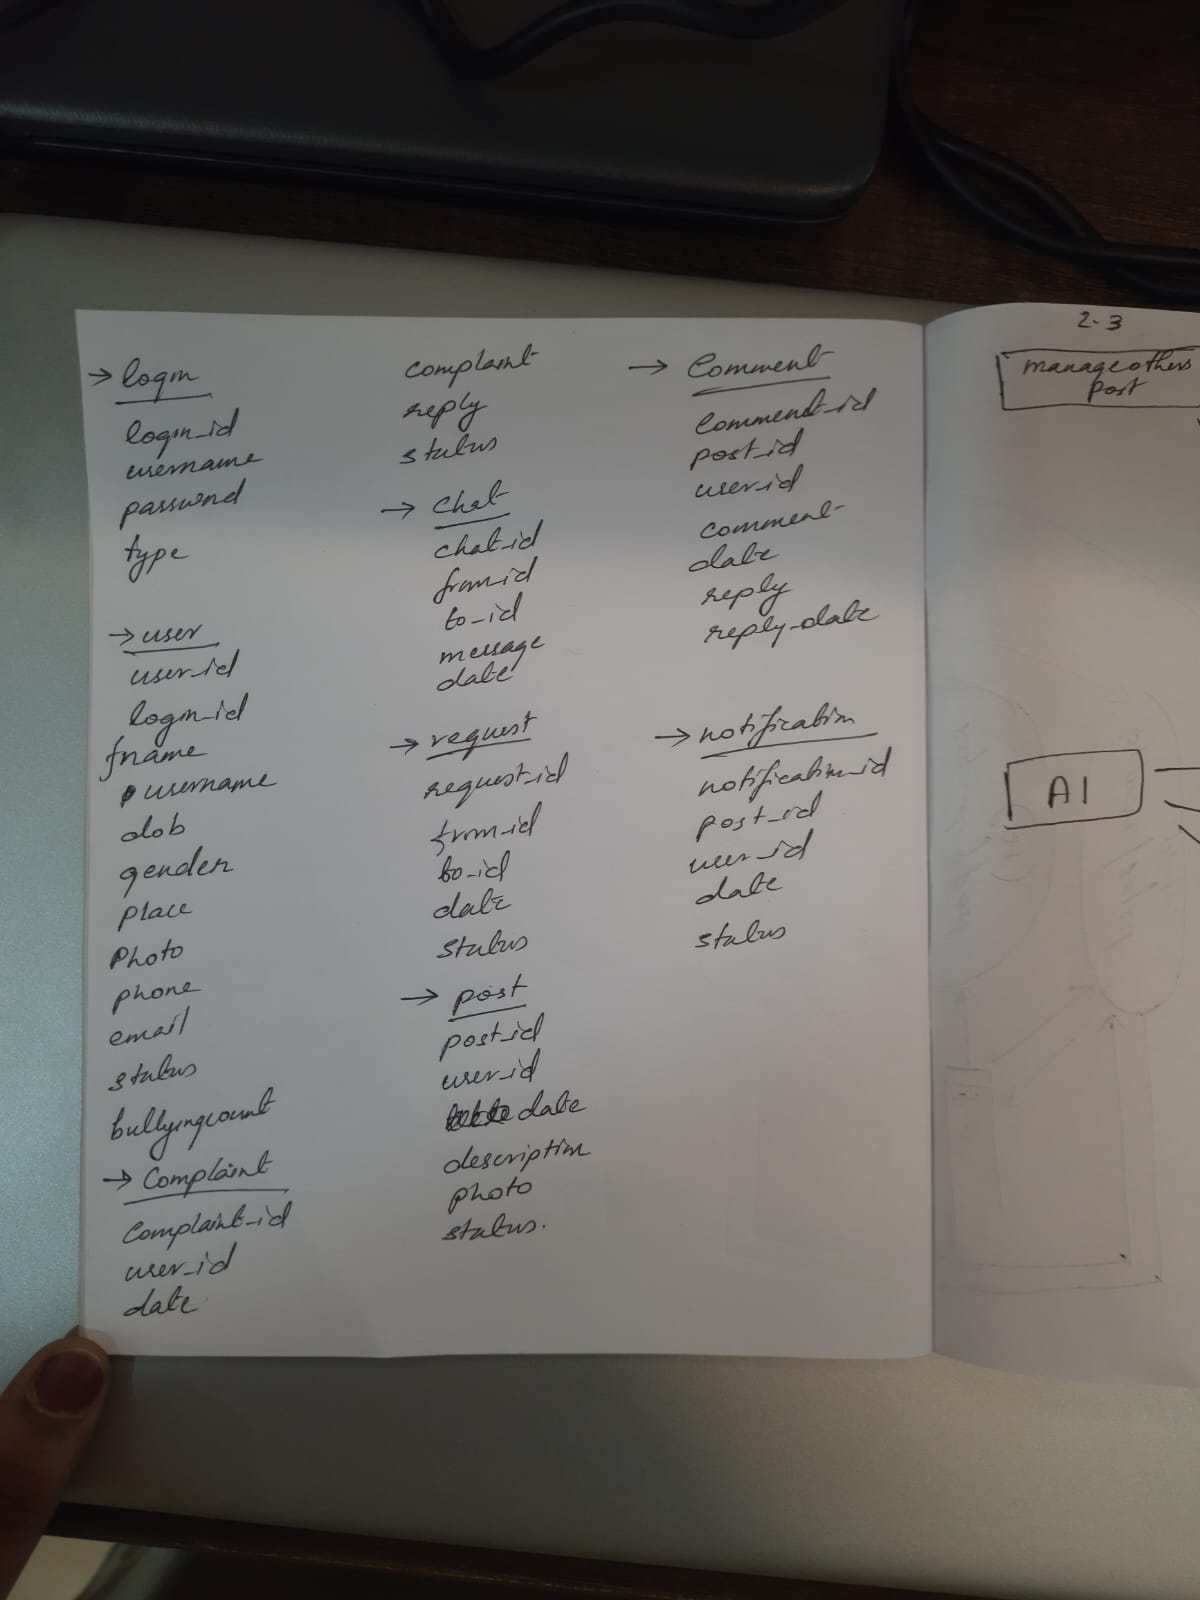 → login
login_id
username
password
type
→ user
user_id
login_id
fname
username
dob
gender
place
Photo
phone
email
status
bullyingcount
→ Complaint
Complaint_id
user_id
date
complaint
reply
status
→ Chat
chat_id
from_id
to_id
message
date
→ request
request_id
from_id
to_id
date
status
→ post
post_id
user_id
date
description
photo
status.
→ Comment
Comment_id
post_id
user_id
comment
date
reply
reply_date
→ notification
notification_id
post_id
user_id
date
status
2.3
manage others
post
AI